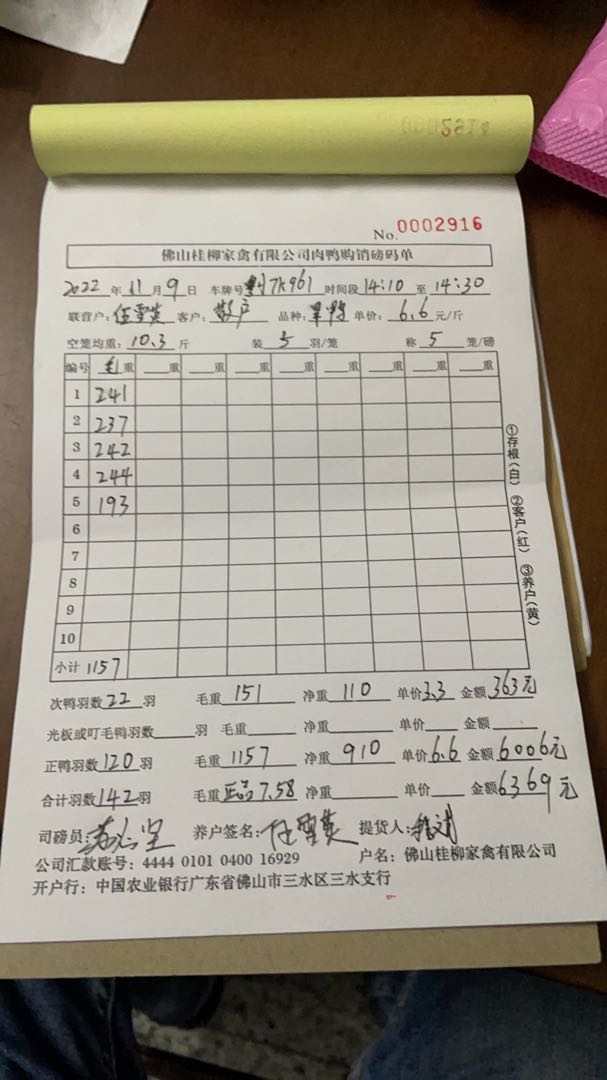 No. 0002916
佛山桂柳家禽有限公司肉鸭购销磅码单
2022 年 11 月 9 日 车牌号 7K961 时间段 14:10 至 14:30
联营户: 伍雪英 客户: 散户 品种: 单价: 6.6 元/斤
空笼均重: 10.3 斤 装 5 羽/笼 称 5 笼/磅
编号 毛重 重 重 重 重 重 重 重 重
1 241
2 237
3 242
4 244
5 193
6
7
8
9
10
小计 1157
①存根(白) ②客户(红) ③养户(黄)
次鸭羽数 22 羽 毛重 151 净重 110 单价 3.3 金额 363元
光板或叮毛鸭羽数 羽 毛重 净重 单价 金额
正鸭羽数 120 羽 毛重 1157 净重 910 单价 6.6 金额 6006元
合计羽数 142 羽 毛重 正品7.58 净重 单价 金额 6369元
司磅员: 养户签名: 伍雪英 提货人:
公司汇款账号: 4444 0101 0400 16929 户名: 佛山桂柳家禽有限公司
开户行: 中国农业银行广东省佛山市三水区三水支行